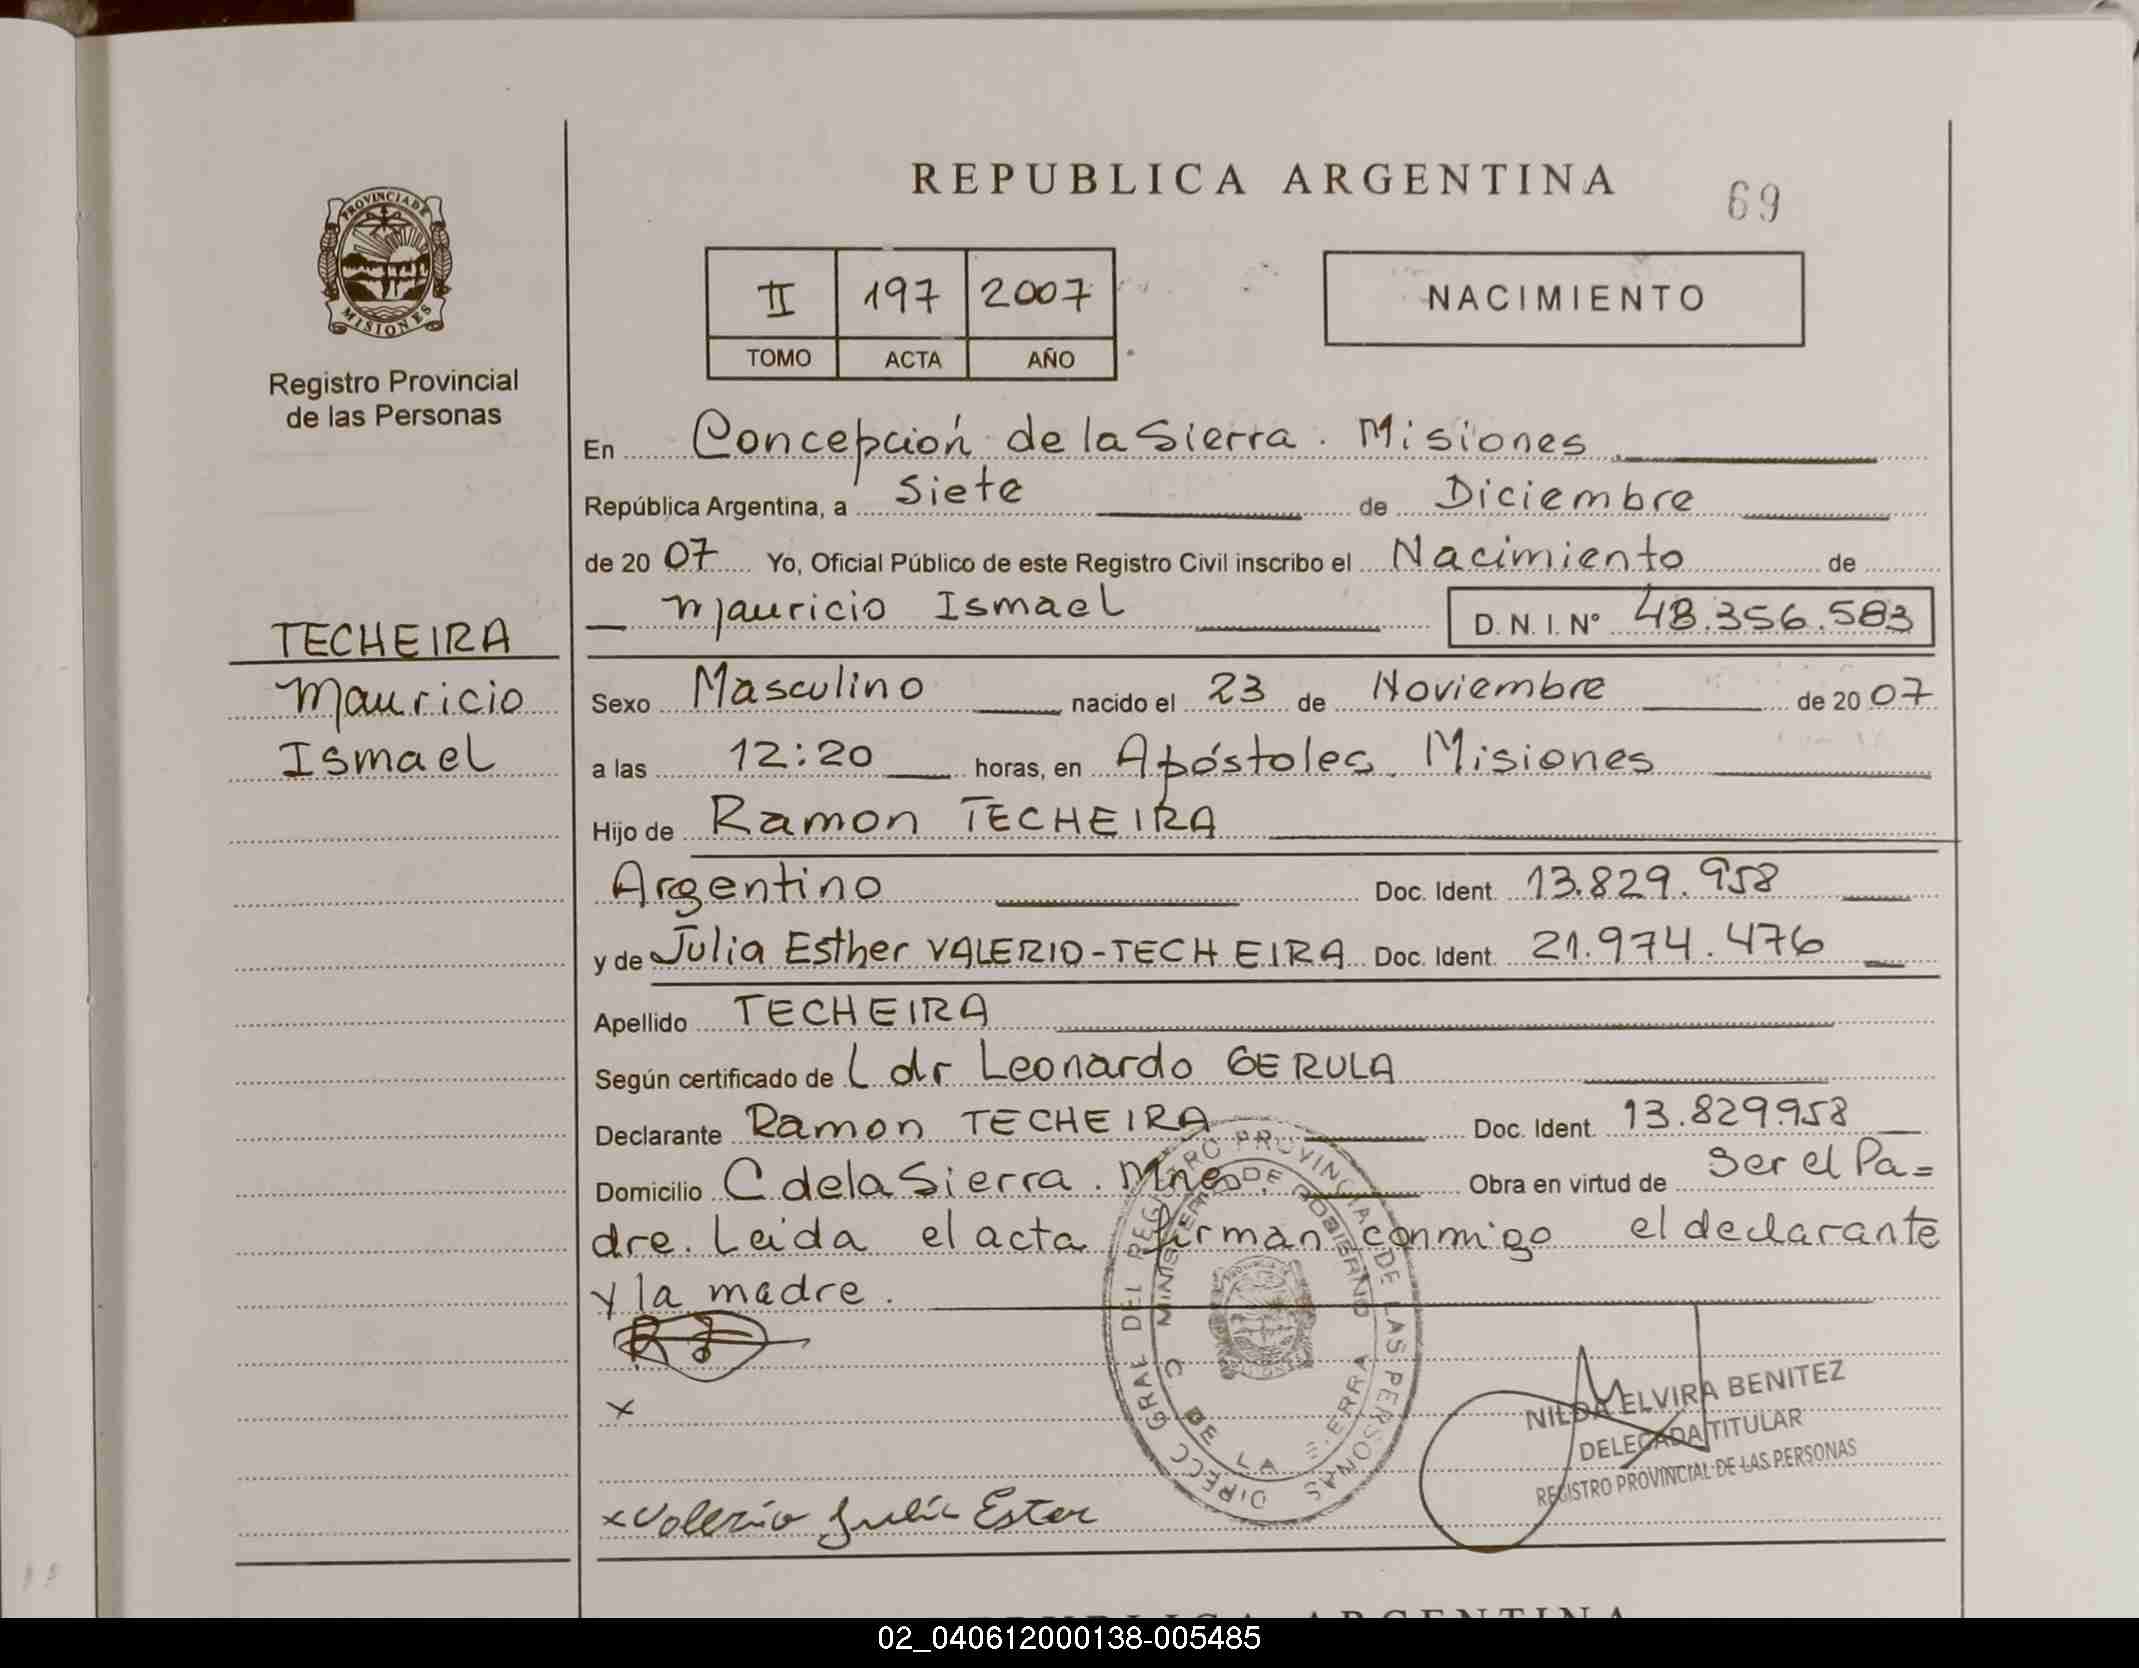 REPUBLICA ARGENTINA
69
PROVINCIA DE
MISIONES
Registro Provincial
de las Personas
II 197 2007
TOMO ACTA AÑO
NACIMIENTO
En Concepción de la Sierra. Misiones
República Argentina, a Siete de Diciembre
de 20 07 Yo, Oficial Público de este Registro Civil inscribo el Nacimiento de
Mauricio Ismael D. N. I. Nº 48.356.583
TECHEIRA
Mauricio
Ismael
Sexo Masculino nacido el 23 de Noviembre de 20 07
a las 12:20 horas, en Apóstoles. Misiones
Hijo de Ramon TECHEIRA
Argentino Doc. Ident. 13.829.958
y de Julia Esther VALERIO-TECHEIRA Doc. Ident. 21.974.476
Apellido TECHEIRA
Según certificado de dr Leonardo GERULA
Declarante Ramon TECHEIRA Doc. Ident. 13.829.958
Domicilio C de la Sierra. Mnes. Obra en virtud de Ser el Pa=
dre. Leida el acta firman conmigo el declarante
y la madre.
x
x Valerio Julia Ester
DIRECC GRAL DEL REGISTRO PROVINCIAL DE LAS PERSONAS
MINISTERIO DE GOBIERNO
C DE LA SIERRA
NILDA ELVIRA BENITEZ
DELEGADA TITULAR
REGISTRO PROVINCIAL DE LAS PERSONAS
REPUBLICA ARGENTINA
02_040612000138-005485